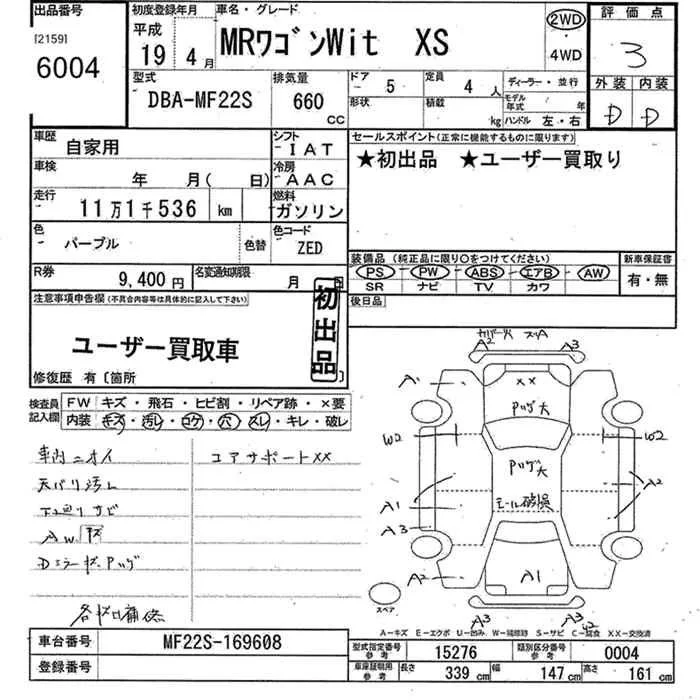 出品番号
[2159]
6004
初度登録年月
平成
19 4月
車名・グレード
MRワゴンWit XS
2WD
4WD
評価点
3
外装 内装
D D
型式
DBA-MF22S
排気量
660
CC
ドア 5
定員 4人
形状
積載 kg
ディーラー・並行
モデル年式 年
ハンドル 左・右
車歴
自家用
シフト
IAT
車検
年 月( 日)
冷房
AAC
走行
11万1千536 km
燃料
ガソリン
色
パープル
色替
色コード
ZED
R券
9,400円
名変通知期限
月 日
セールスポイント(正常に機能するものに限ります)
★初出品 ★ユーザー買取り
装備品(純正品に限り○をつけてください)
PS PW ABS エアB AW
SR ナビ TV カワ
新車保証書
有・無
後日品
注意事項申告欄(不具合内容等は具体的に記入して下さい)
初出品
ユーザー買取車
修復歴 有〔箇所 〕
検査員記入欄
FW キズ・飛石・ヒビ割・リペア跡・×要
内装 キズ・汚レ・コゲ・穴・スレ・キレ・破レ
車内ニオイ
コアサポートXX
天バリ汚レ
下廻りサビ
AWキズ
Dミラーキズ、Pツゲ
各キズ凹補修
カバー欠 スリA
A2 A3
A1
XX
Pツゲ大
W2 W2
Pツゲ大
モール破損
A1 A2
A3
A2 A1
A3
スペア
A-キズ E-エクボ U-凹み W-補修跡 S-サビ C-腐食 XX-交換済
車台番号
MF22S-169608
登録番号
型式指定番号参考
15276
類別区分番号参考
0004
車庫証明用参考
長さ 339cm 幅 147cm 高さ 161cm